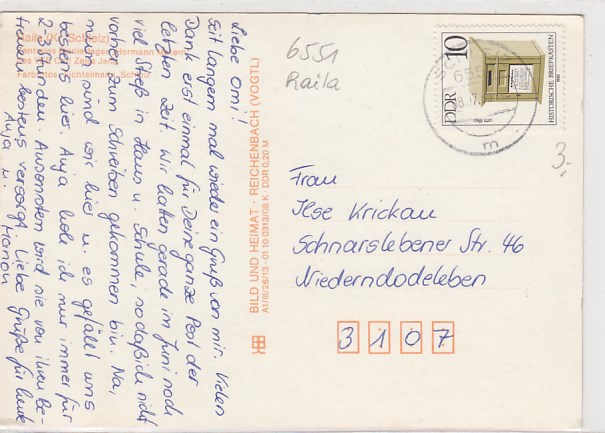 Raila (Kr. Schleiz)
Liebe Omi!
Seit langem mal wieder ein Gruß von mir. Vielen
Dank erst einmal für Deine ganze Post der
letzten Zeit. Wir hatten gerade im Juni noch
viel Streß in Haus u. Schule, sodaßich nicht
vorher zum Schreiben gekommen bin. Na,
nun sind wir hier u. es gefällt uns
bestens hier. Anja hole ich nur immer für
2-3 Stunden. Ansonsten wird sie von ihren Be-
treuern bestens versorgt. Liebe Grüße für heute
Anja u. Manon
BILD UND HEIMAT · REICHENBACH (VOGTL)
A1/III/26/13 · 01 10 0313/08 K · DDR 0,20 M
6551
Raila
DDR 10
HISTORISCHE BRIEFKASTEN
m
3,-
Frau
Ilse Krickau
Schnarslebener Str. 46
Niederndodeleben
3107